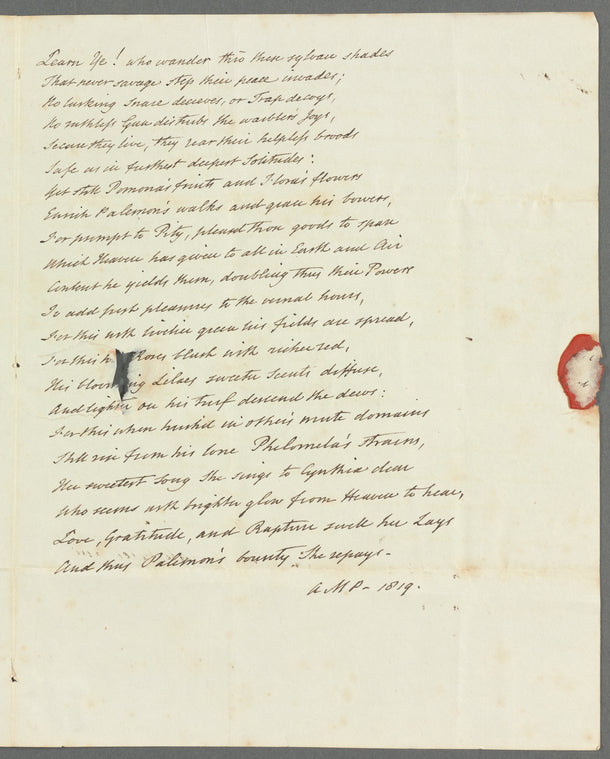 Learn Ye! who wander thro these sylvan shades
That never savage step their peace invades;
No lurking Snare deceives, or Trap decoys,
No ruthless Gun disturbs the warbler's Joys,
Secure they live, they rear their helpless broods
Safe as in furthest deepest Solitudes:
Yet still Pomona's fruits and Flora's flowers
Enrich Palemon's walks and grace his bowers,
For prompt to Pity, pleased those goods to spare
Which Heaven has given to all in Earth and Air
Content he yields them, doubling thus their Powers
To add fresh pleasures to the vernal hours,
For this with livelier green his fields are spread,
For this h Roses blush with richer red,
His blooming Lilacs sweeter Scents diffuse,
And lighter on his turf descend the dews:
For this when hush'd in other's mute domains
Still rise from his lone Philomela's strains,
Her sweetest Song She sings to Cynthia dear
Who seems with brighter glow from Heaven to hear,
Love, Gratitude, and Rapture swell her Lays
And thus Palemon's bounty She repays-
A M P - 1819.